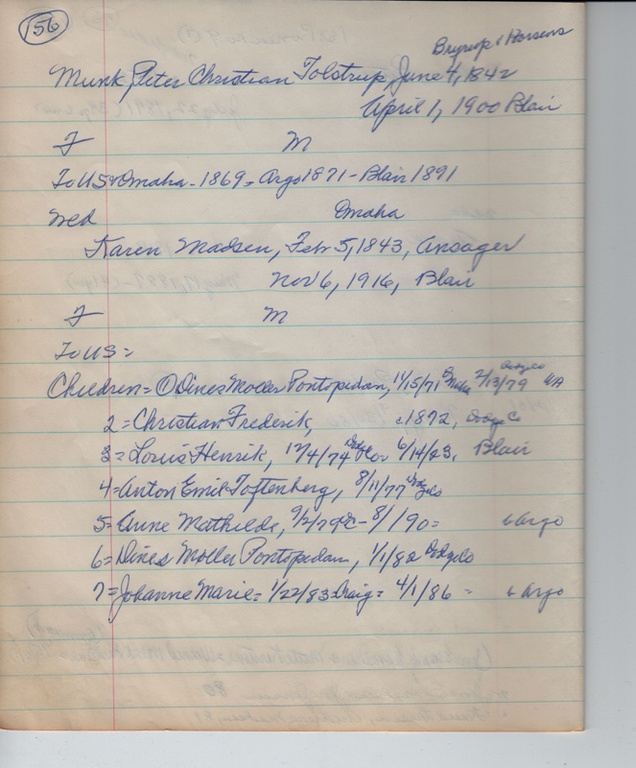 156
Bryrup & Horsens
Munk, Peter Christian Tolstrup, June 4, 1842
April 1, 1900 Blair
F M
To US = Omaha - 1869, Argo 1871 - Blair 1891
Wed Omaha
Karen Madsen, Feb 5, 1843, Ansager
Nov 6, 1916, Blair
F M
To US =
Children = ① Dines Moller Pontopidan, 11/15/71 2/13/79 Dodge Co
2 = Christian Frederik, c1872, Dodge Co
3 = Louis Henrik, 12/4/74 Dodge Co 6/14/23, Blair
4 = Anton Emil Toftenberg, 8/11/77 Dodge Co
5 = Anne Mathilde, 9/2/79 - 8/190 = Argo
6 = Dines Moller Pontopidan, 1/1/82 Dodge Co
7 = Johanne Marie = 1/22/83 Craig = 4/1/86 = Argo